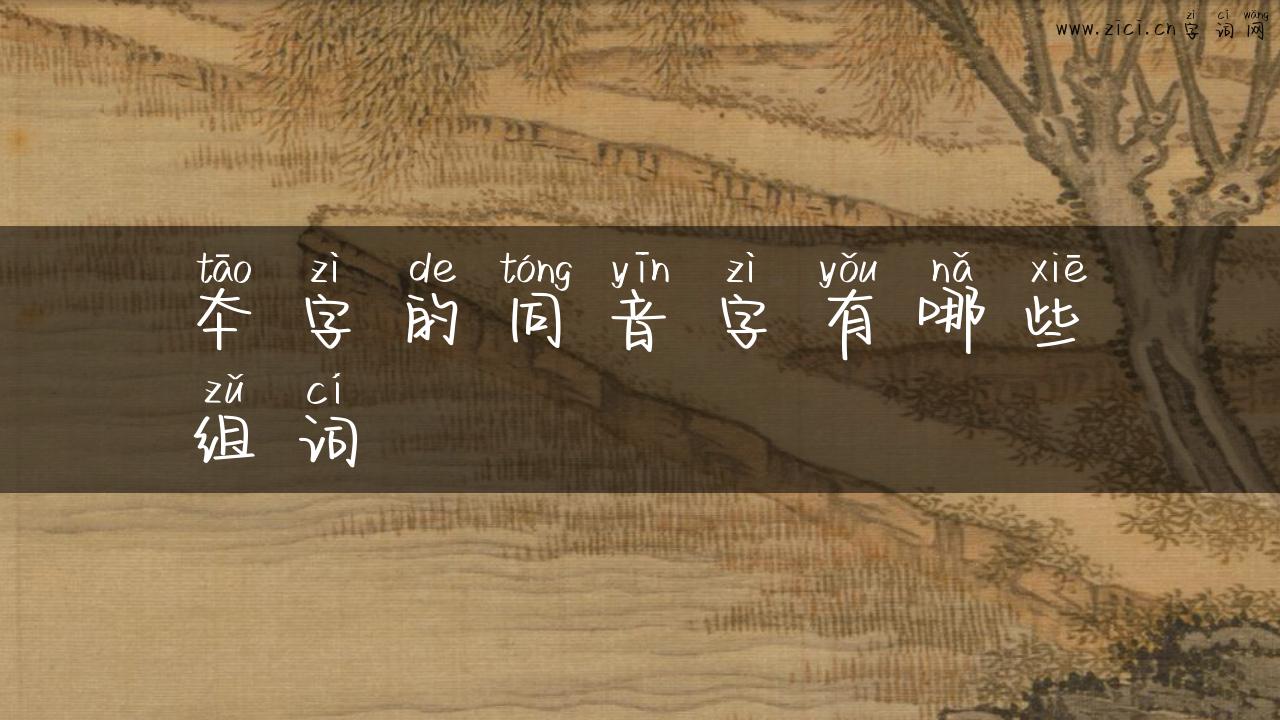 zì cí wǎng
www.zici.cn字词网
tāo zì de tóng yīn zì yǒu nǎ xiē
夲字的同音字有哪些
zǔ cí
组词